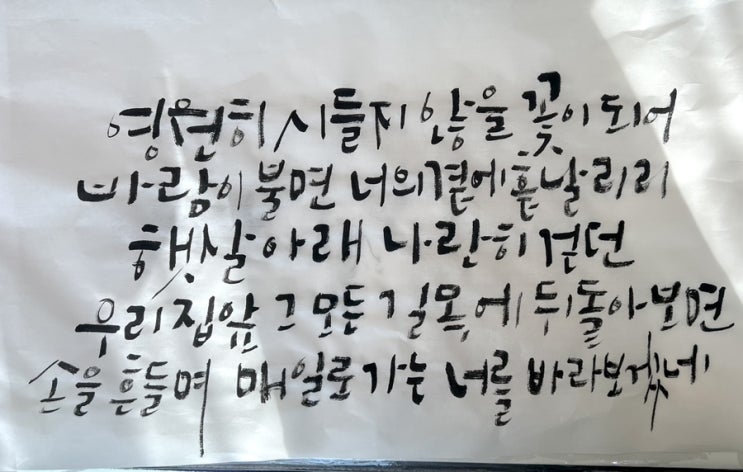 영원히 시들지 않을 꽃이 되어
바람이 불면 너의 곁에 흩날리리
햇살 아래 나란히 걷던
우리 집 앞 그 모든 길목에 뒤돌아보면
손을 흔들며 매일로 가는 너를 바라보겠네